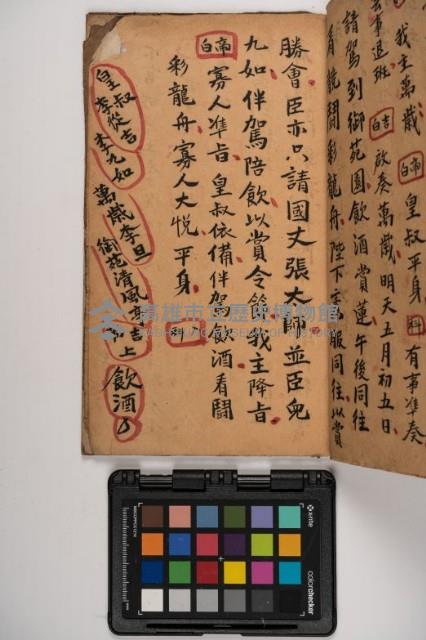 我主萬歲 帝白 皇叔平身 科 有事準奏
白 啟奏萬歲明天五月初五日
請駕到御苑園飲酒賞蓮午後同往
看龍鬧彩龍舟陛下 服同往以賞
勝會臣亦只請國丈張太師並臣兒
九如伴駕陪飲以賞令節我主降旨
帝白 寡人準旨皇叔依備伴駕飲酒看鬧
彩龍舟寡人大悅平身 科
皇叔李從吉 李九如 萬歲李旦 御苑清風亭 上
飲酒
高雄市立歷史博物館
KAOHSIUNG MUSEUM OF HISTORY
x-rite
colorchecker